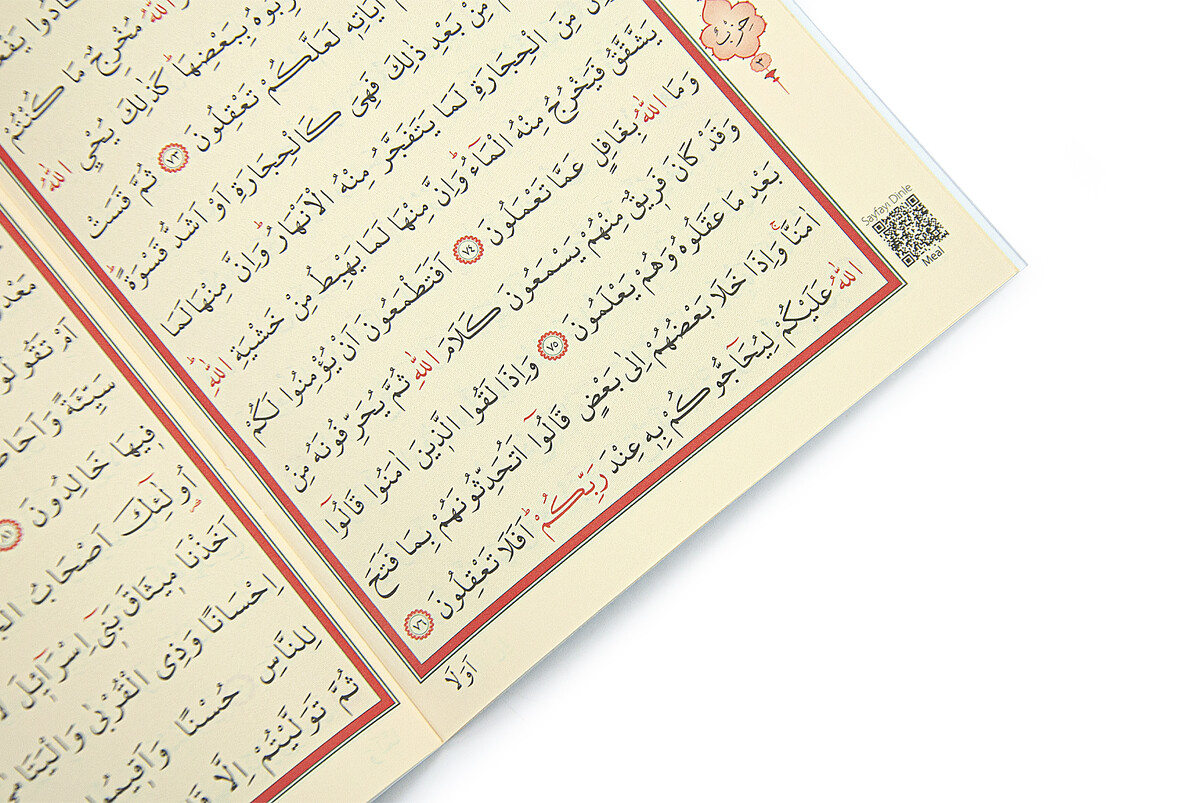 حِزْبٌ
٣
مُخْرِجٌ مَا كُنْتُمْ
بِبَعْضِهَاۜ كَذٰلِكَ يُحْيِي اللّٰهُ
اٰيَاتِه۪ لَعَلَّكُمْ تَعْقِلُونَ ﴿٧٣﴾ ثُمَّ قَسَتْ
مِنْ بَعْدِ ذٰلِكَ فَهِيَ كَالْحِجَارَةِ اَوْ اَشَدُّ قَسْوَةًۜ
مِنَ الْحِجَارَةِ لَمَا يَتَفَجَّرُ مِنْهُ الْاَنْهَارُۜ وَاِنَّ مِنْهَا لَمَا
يَشَّقَّقُ فَيَخْرُجُ مِنْهُ الْمَٓاءُۜ وَاِنَّ مِنْهَا لَمَا يَهْبِطُ مِنْ خَشْيَةِ اللّٰهِۜ
وَمَا اللّٰهُ بِغَافِلٍ عَمَّا تَعْمَلُونَ ﴿٧٤﴾ اَفَتَطْمَعُونَ اَنْ يُؤْمِنُوا لَكُمْ
وَقَدْ كَانَ فَر۪يقٌ مِنْهُمْ يَسْمَعُونَ كَلَامَ اللّٰهِ ثُمَّ يُحَرِّفُونَهُ مِنْ
بَعْدِ مَا عَقَلُوهُ وَهُمْ يَعْلَمُونَ ﴿٧٥﴾ وَاِذَا لَقُوا الَّذ۪ينَ اٰمَنُوا قَالُٓوا
اٰمَنَّاۚ وَاِذَا خَلَا بَعْضُهُمْ اِلٰى بَعْضٍ قَالُٓوا اَتُحَدِّثُونَهُمْ بِمَا فَتَحَ
اللّٰهُ عَلَيْكُمْ لِيُحَٓاجُّوكُمْ بِه۪ عِنْدَ رَبِّكُمْۜ اَفَلَا تَعْقِلُونَ ﴿٧٦﴾
اَوَلَا
Sayfayı Dinle
Meal
اَمْ تَقُولُو
سَيِّئَةً وَاَحَا
ف۪يهَا خَالِدُونَ
اُو۬لٰٓئِكَ اَصْحَابُ
اَخَذْنَا م۪يثَاقَ بَن۪ٓي اِسْرَٓائ۪لَ
اِحْسَانًا وَذِي الْقُرْبٰى وَالْيَتَامٰى
لِلنَّاسِ حُسْنًا وَاَق۪يمُوا
ثُمَّ تَوَلَّيْتُمْ اِلَّا